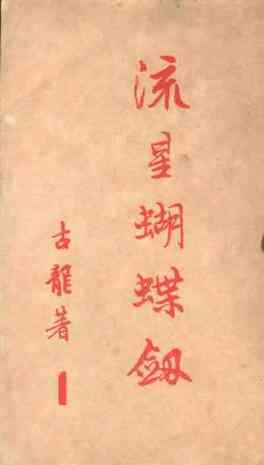 流星蝴蝶劔
古龍著
1